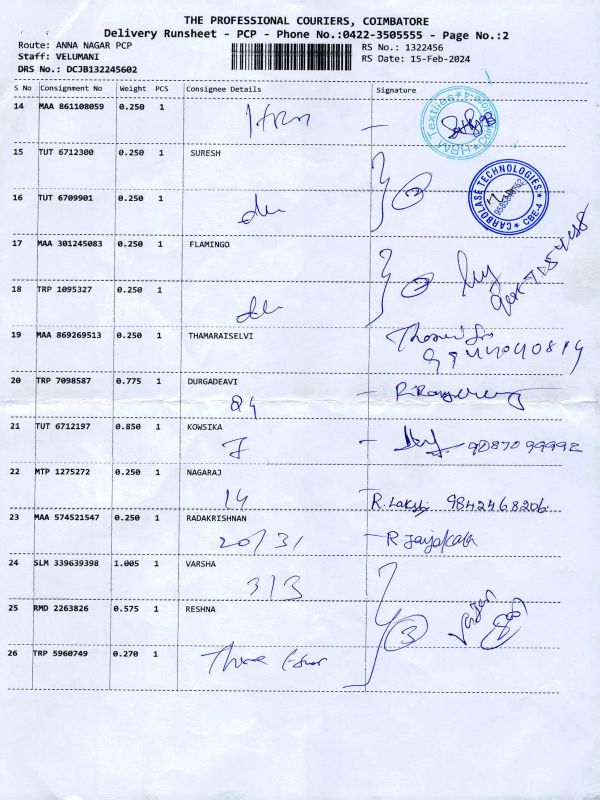 THE PROFESSIONAL COURIERS, COIMBATORE
Delivery Runsheet - PCP - Phone No.:0422-3505555 - Page No.:2
Route: ANNA NAGAR PCP
RS No.: 1322456
Staff: VELUMANI
RS Date: 15-Feb-2024
DRS No.: DCJB132245602
S No Consignment No Weight PCS Consignee Details Signature
14 MAA 861108059 0.250 1
HRM
HRM Textiles
15 TUT 6712300 0.250 1 SURESH
CARBOLASE TECHNOLOGIES
CBE-4
16 TUT 6709901 0.250 1
2
17 MAA 301245083 0.250 1 FLAMINGO
18 TRP 1095327 0.250 1
2
19 MAA 869269513 0.250 1 THAMARAISELVI
9944040814
20 TRP 7098587 0.775 1 DURGADEAVI
21 TUT 6712197 0.850 1 KOWSIKA
7 9087099992
22 MTP 1275272 0.250 1 NAGARAJ
14 R. Lakshi 9842468206
23 MAA 574521547 0.250 1 RADAKRISHNAN
20/31 R Jayakala
24 SLM 339639398 1.005 1 VARSHA
3/3
25 RMD 2263826 0.575 1 RESHNA
3
26 TRP 5960749 0.270 1